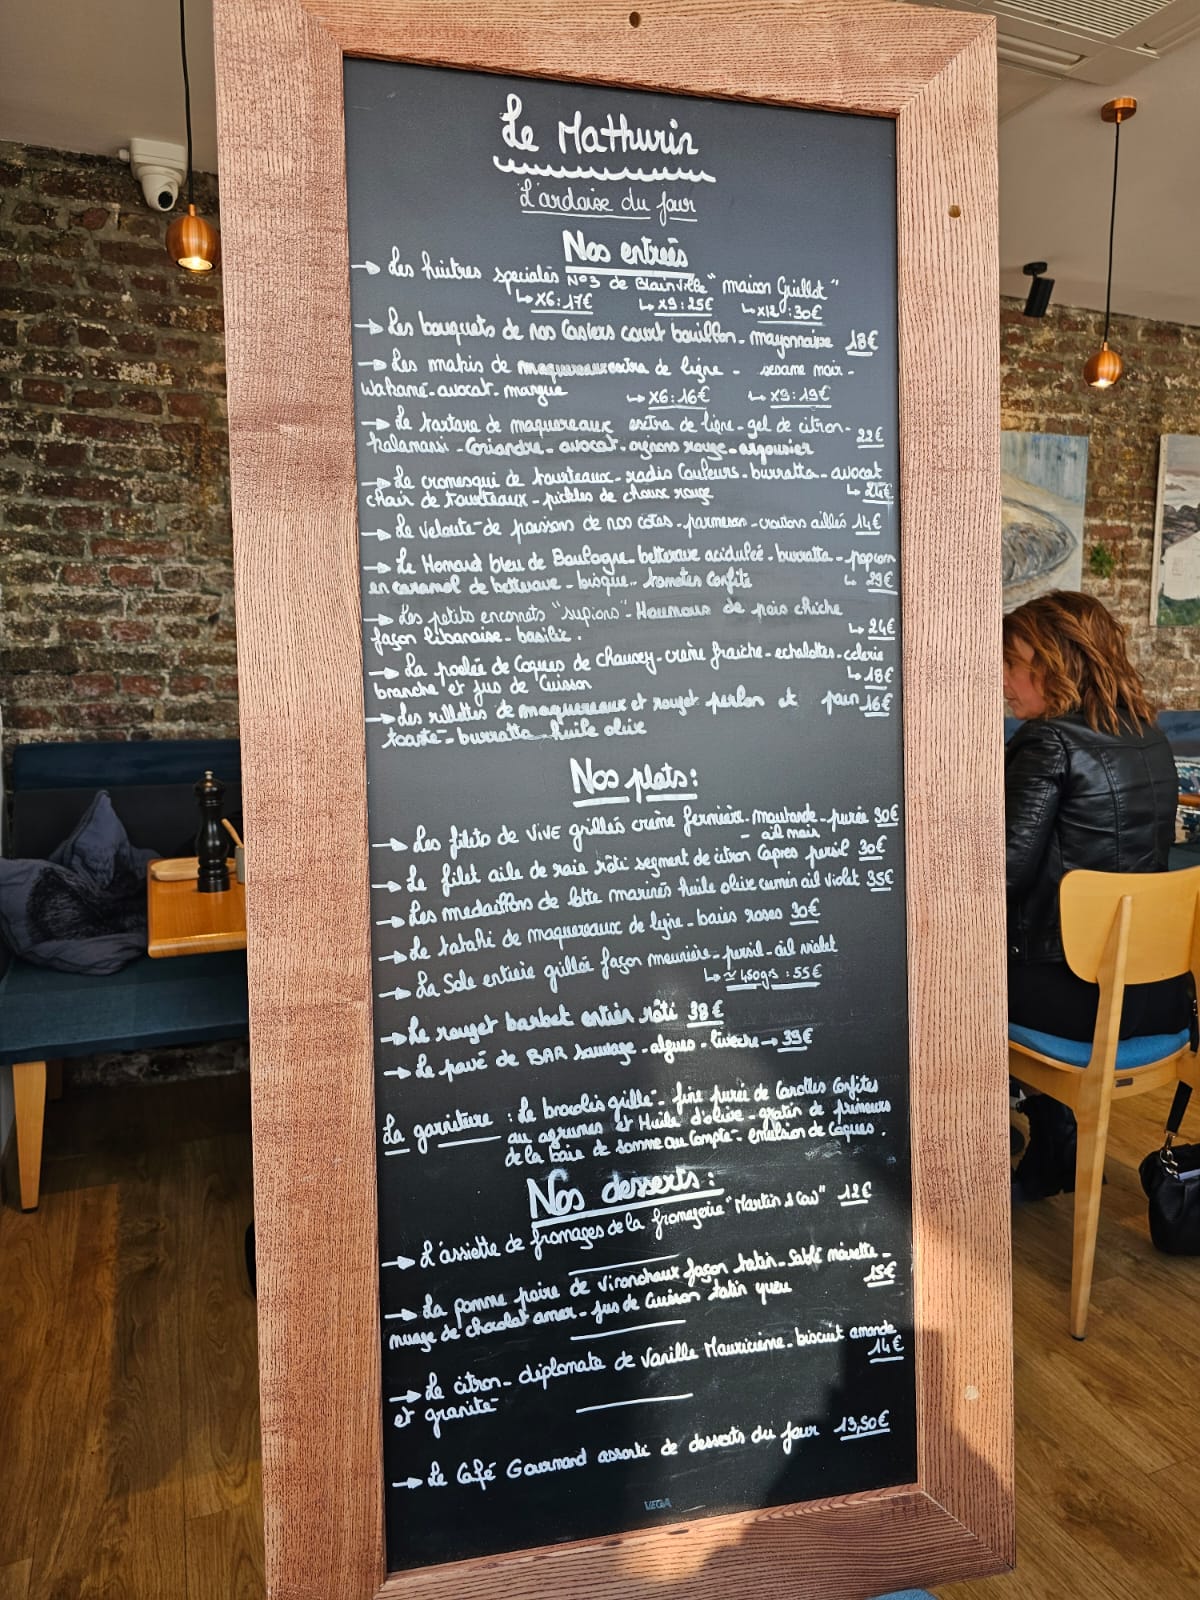 Le Mathurin
L'ardoise du jour
Nos entrées
→ Les huitres speciales N°3 de Blainville "maison Guillot"
↳ x6 : 17€ ↳ x9 : 25€ ↳ x12 : 30€
→ Les bouquets de nos Casiers court bouillon - mayonnaise 18€
→ Les makis de maquereaux extra de ligne - sesame noir -
wakamé - avocat - mangue ↳ x6 : 16€ ↳ x9 : 19€
→ Le tartare de maquereaux extra de ligne - gel de citron -
kalamansi - Coriandre - avocat - oignons rouge - argousier 22€
→ Le cromesqui de tourteaux - radis Couleurs - burratta - avocat
chair de tourteaux - pickles de choux rouge ↳ 24€
→ Le velouté de poissons de nos côtes - parmesan - croutons aillés 14€
→ Le Homard bleu de Boulogne - betterave acidulée - burratta - popcorn
en caramel de betterave - bisque - tomates Confite ↳ 29€
→ Les petits encornets "supions" - Houmous de pois chiche
façon libanaise - basilic . ↳ 24€
→ La poelée de Coques de Chausey - crème fraiche - echalottes - celerie
branche et jus de Cuisson ↳ 18€
→ Les rillettes de maquereaux et rouget perlon et pain 16€
toasté - burratta huile olive
Nos plats :
→ Les filets de VIVE grillés creme fermière - moutarde - purée 30€
- ail noir
→ Le filet aile de raie rôti segment de citron Capres persil 30€
→ Les medaillons de lotte marinés huile olive cumin ail violet 35€
→ Le tataki de maquereaux de ligne - baies roses 30€
→ La Sole entière grillée façon meunière - persil - ail violet
↳ ≃ 450grs : 55€
→ Le rouget barbet entier rôti 38€
→ Le pavé de BAR sauvage - algues - livèche → 39€
La garniture : Le brocolis grillé - fine purée de Carottes Confites
au agrumes et Huile d'olive - gratin de primeurs
de la baie de somme au Compté - emulsion de Coques .
Nos desserts :
→ L'assiette de fromages de la fromagerie "Martin & Cow" 12€
→ La pomme poire de Vironchaux façon tatin - Sablé noisette -
nuage de chocolat amer - jus de Cuisson tatin yuzu 15€
→ Le citron - diplomate de Vanille Mauricienne - biscuit amande
et granité 14€
→ Le Café Gourmand assorti de desserts du jour 13,50€
VEGA